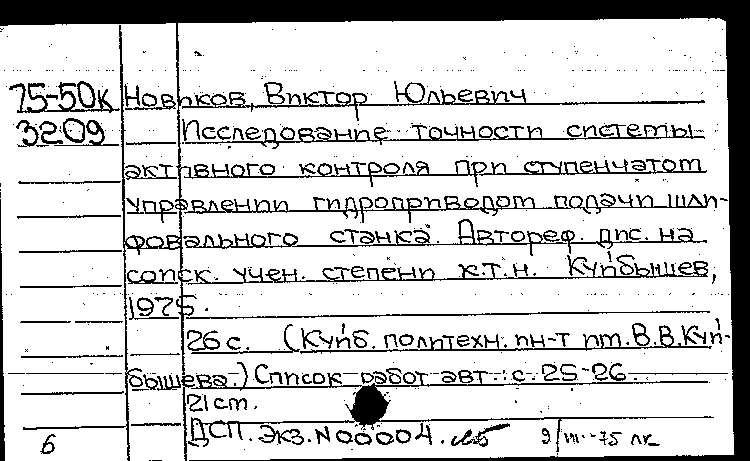 75-50к Новиков, Виктор Юльевич
3209 Исследование точности системы
активного контроля при ступенчатом
управлении гидроприводом подачи шли-
фовального станка. Автореф. дис. на
соиск. учен. степени к.т.н. Куйбышев,
1975.
26 с. (Куйб. политехн. ин-т им. В.В.Куй-
бышева.) Список работ авт.: с. 25-26.
21 cm.
ДСП. экз. N 00004.
б 9/III-75 лк